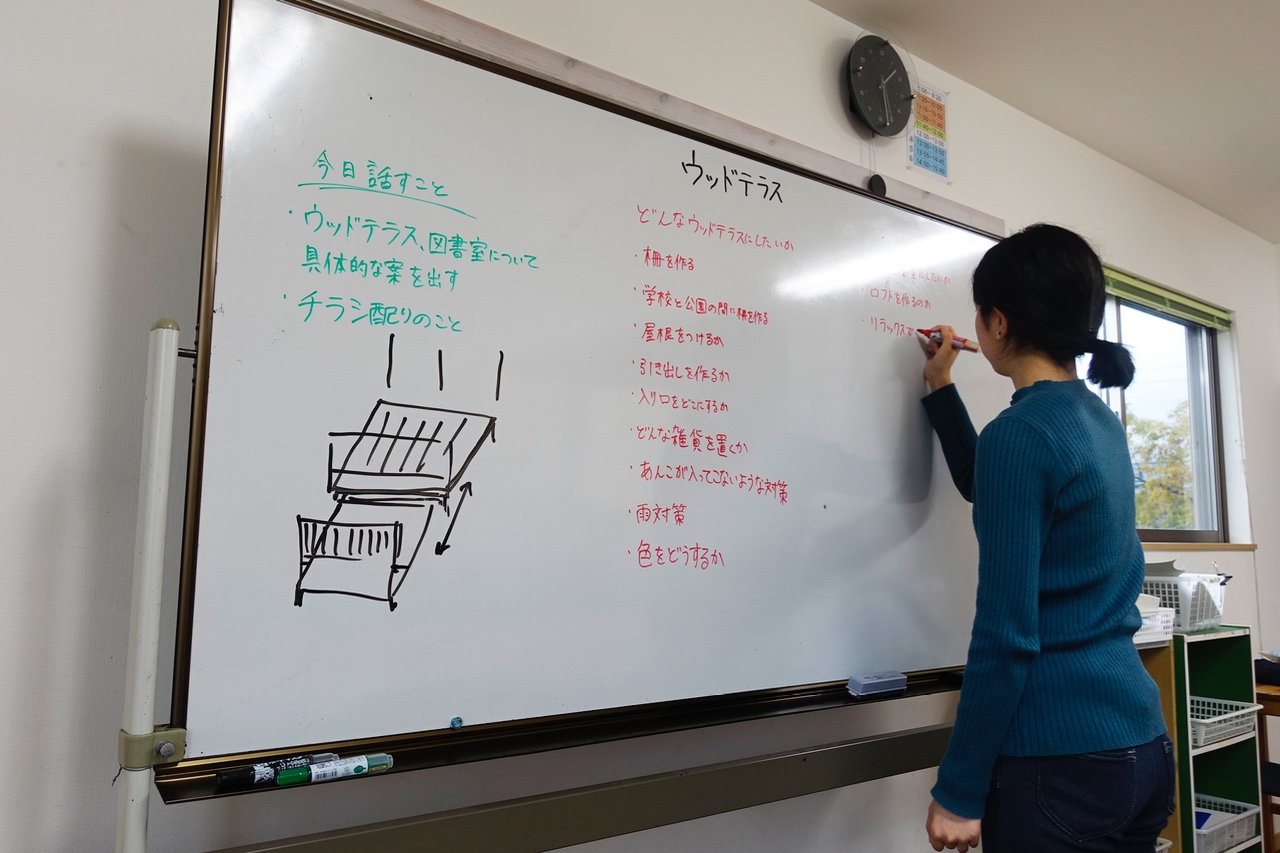 今日話すこと
・ウッドテラス、図書室について
具体的な案を出す
・チラシ配りのこと
ウッドテラス
どんなウッドテラスにしたいか
・柵を作る
・学校と公園の間に柵を作る
・屋根をつけるか
・引き出しを作るか
・入り口をどこにするか
・どんな雑貨を置くか
・あんこが入ってこないような対策
・雨対策
・色をどうするか
にしたいか
・ロフトを作るのか
・リラックス